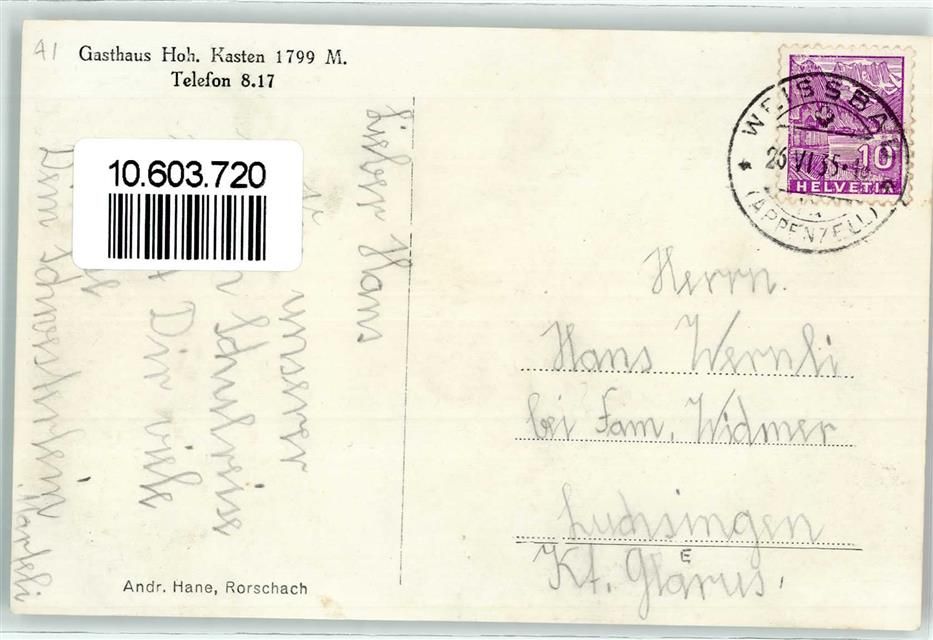 A1
Gasthaus Hoh. Kasten 1799 M.
Telefon 8.17
10.603.720
WEISSBAD
26 VI 35
(APPENZELL)
10
HELVETIA
Lieber Hans
unserer
Schulreise
Dir viele
Dein Schwesterchen
Herrn.
Hans Wernli
bei Fam. Widmer
Luchsingen
Kt. Glarus.
E
Andr. Hane, Rorschach